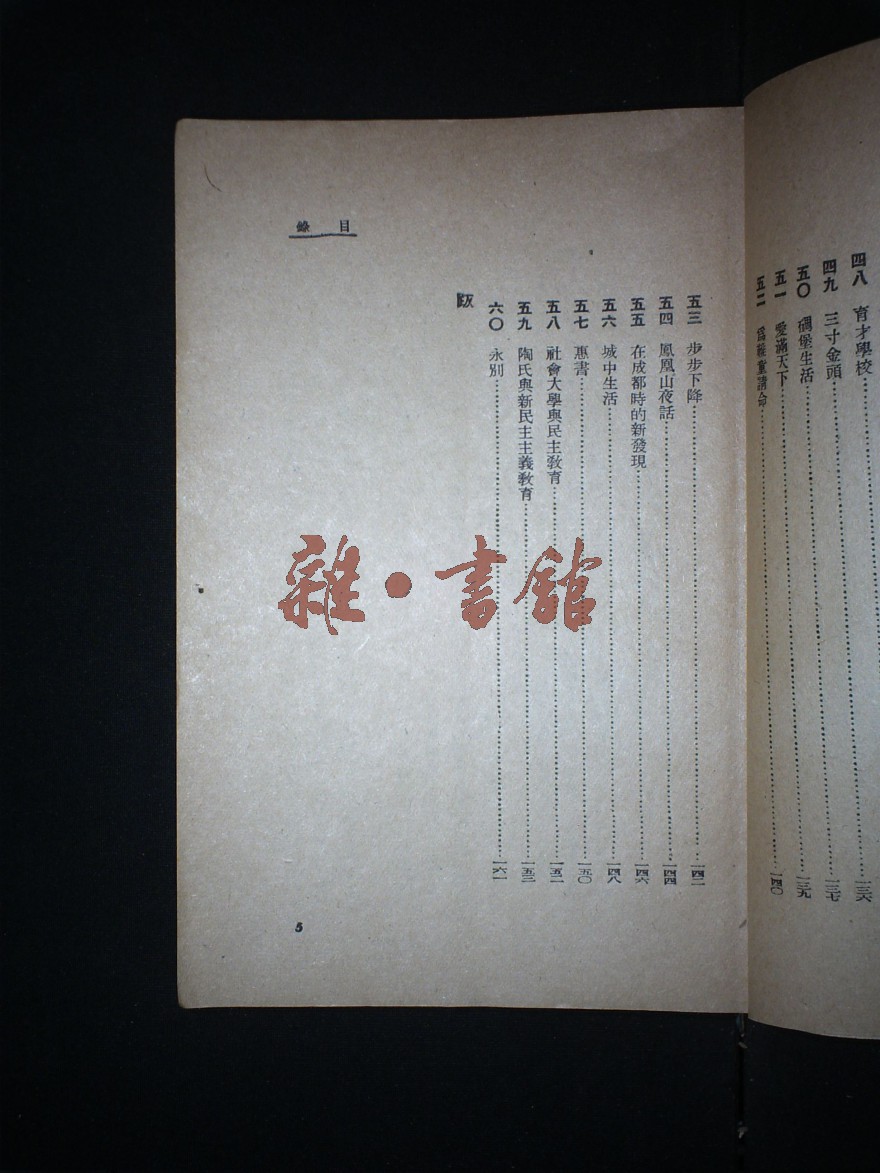 四八 育才學校……一三六
四九 三寸金頭……一三七
五〇 碉堡生活……一三九
五一 愛滿天下……一四〇
五二 爲難童請命……
目錄
五三 步步下降……一四二
五四 鳳凰山夜話……一四四
五五 在成都時的新發現……一四六
五六 城中生活……一四八
五七 惠書……一五〇
五八 社會大學與民主敎育……一五二
五九 陶氏與新民主主義敎育……一五三
六〇 永別……一六一
跋
5
雜·書館